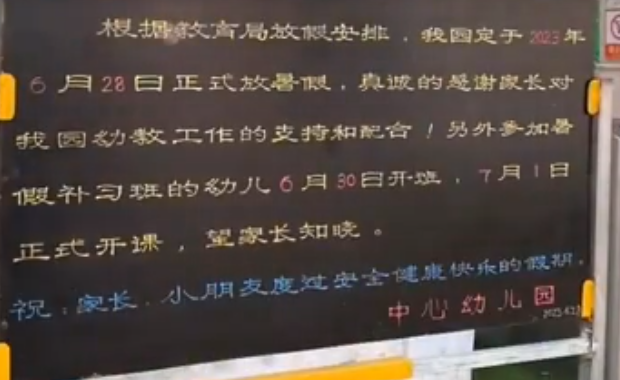 根据教育局放假安排，我园定于2023年
6月28日正式放暑假，真诚的感谢家长对
我园幼教工作的支持和配合！另外参加暑
假补习班的幼儿6月30日开班，7月1日
正式开课，望家长知晓。
祝：家长、小朋友度过安全健康快乐的假期。
中心幼儿园